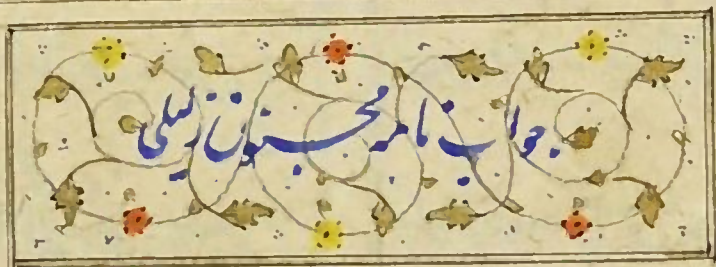 جواب نامه مجنون ز لیلی